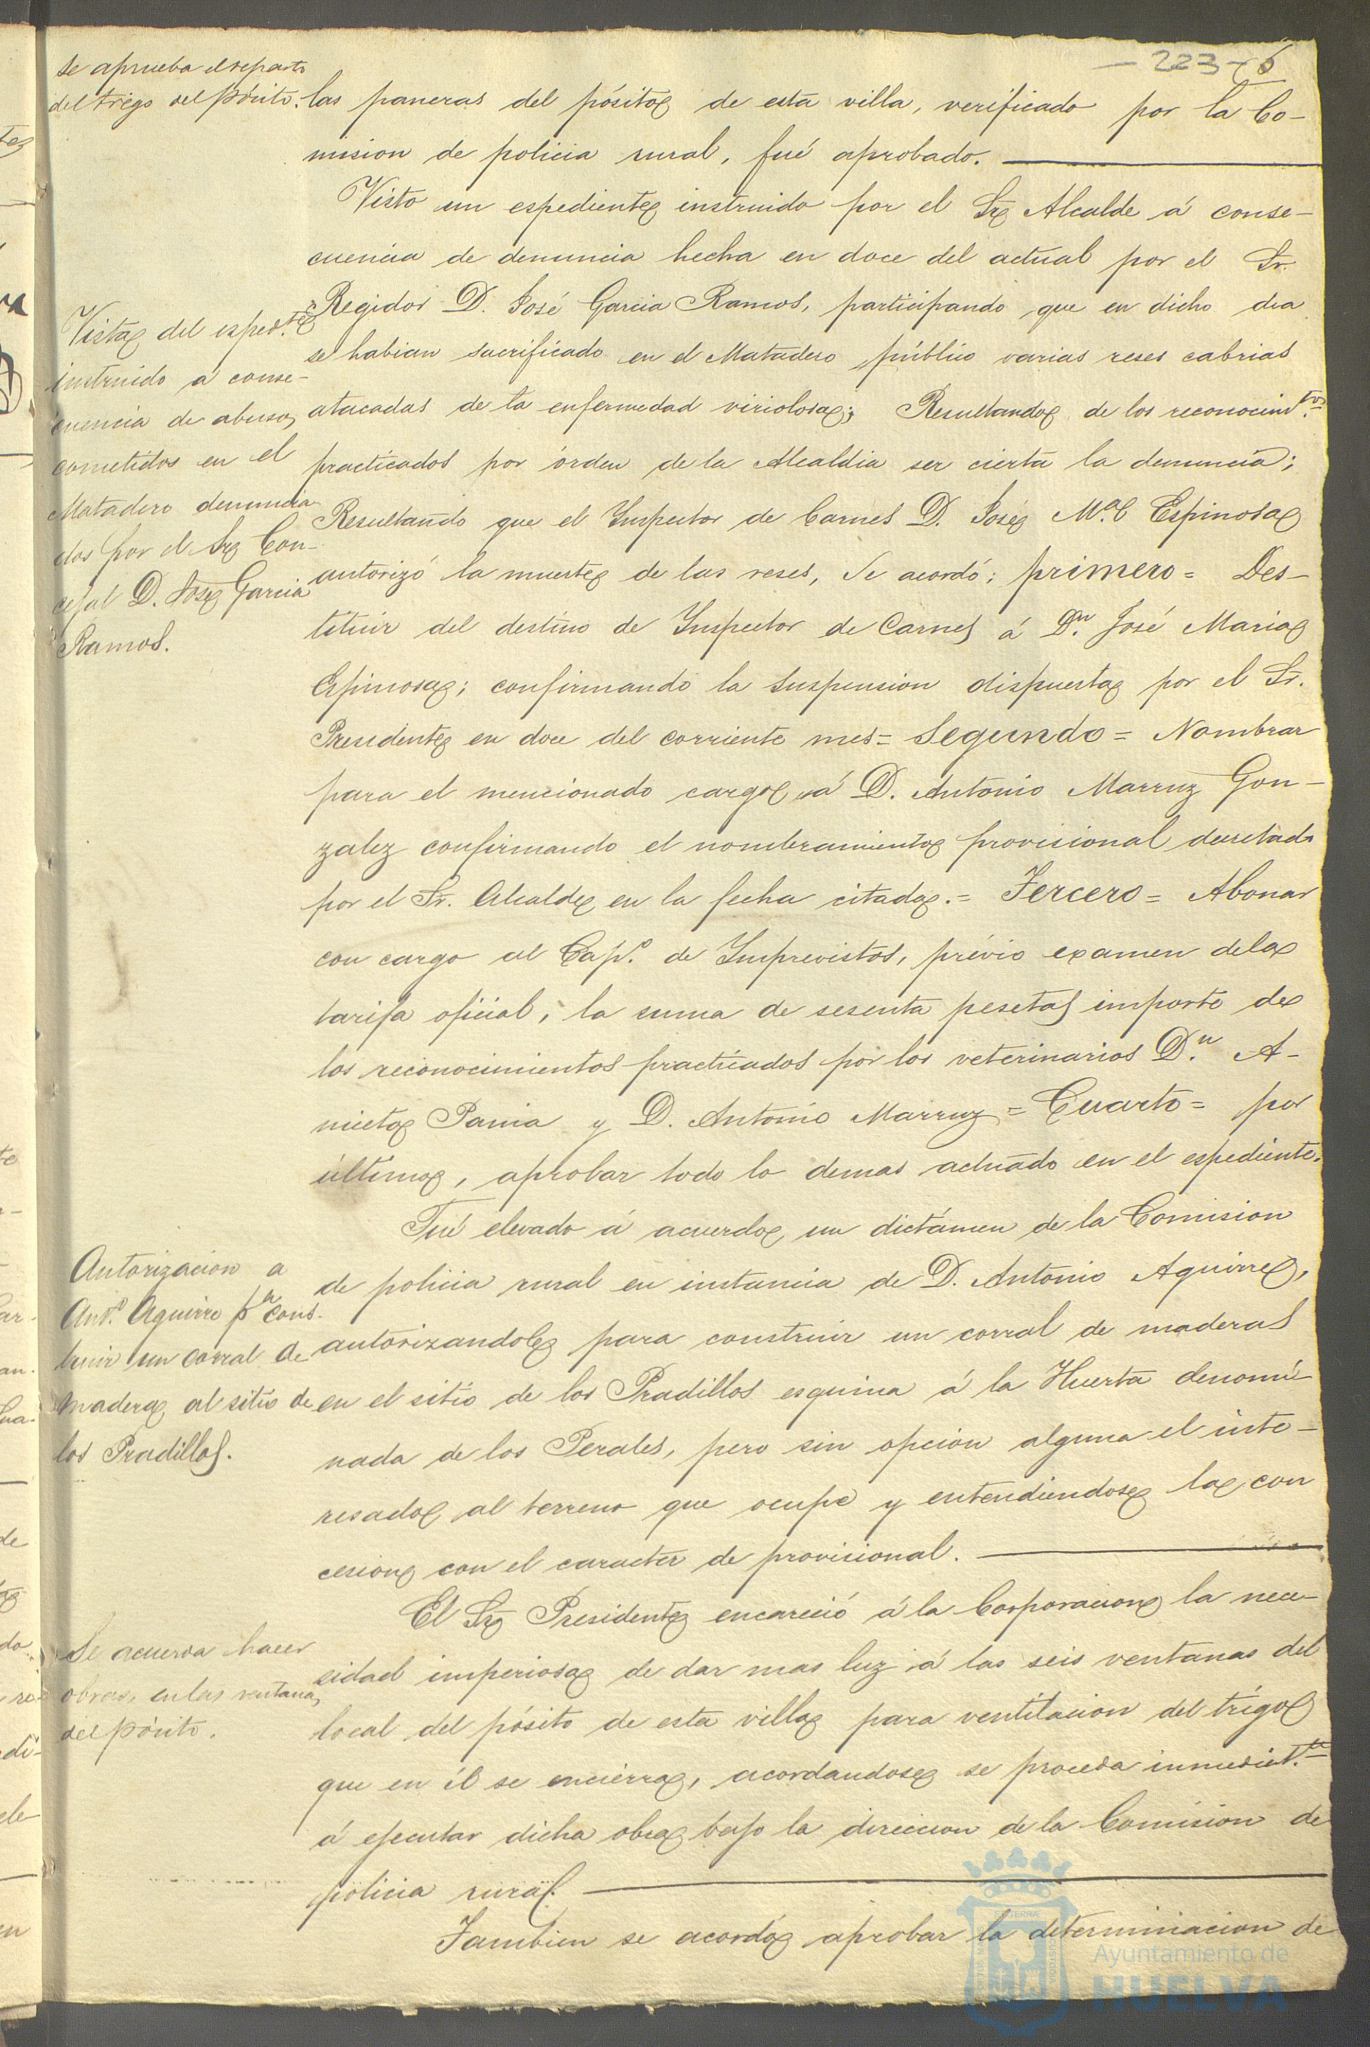 - 223 - 6
se aprueba el reparto
del trigo del Pósito.
las paneras del pósito de esta villa, verificado por la Co-
mision de policia rural, fué aprobado.
Visto un espediente instruido por el Sr Alcalde á conse-
cuencia de denuncia hecha en doce del actual por el Sr.
Regidor D. José Garcia Ramos, participando que en dicho dia
se habian sacrificado en el Matadero público varias reses cabrias
atacadas de la enfermedad viriolosa; Resultando de los reconocimtos
practicados por órden de la Alcaldia ser cierta la denuncia;
Resultando que el Inspector de Carnes D. José Ma. Espinosa
autorizó la muerte de las reses, se acordó: primero = Des-
tituir del destino de Inspector de Carnes á Dn. José Maria
Espinosa; confirmando la suspension dispuesta por el Sr.
Presidente en doce del corriente mes = Segundo = Nombrar
para el mencionado cargo á D. Antonio Marruz Gon-
zalez confirmando el nombramiento provisional decretado
por el Sr. Alcalde en la fecha citada. = Tercero = Abonar
con cargo al Capo. de Imprevistos, prévio examen de la
tarifa oficial, la suma de sesenta pesetas importe de
los reconocimientos practicados por los veterinarios Dn. A-
niceto Pania y D. Antonio Marruz = Cuarto = por
último, aprobar todo lo demas actuado en el espediente.
Vista del espedte
instruido á conse-
cuencia de abusos
cometidos en el
Matadero denuncia-
dos por el Sr Con-
cejal D. José Garcia
Ramos.
Fué elevado á acuerdo un dictámen de la Comision
de policia rural en instancia de D. Antonio Aguirre,
autorizandole para construir un corral de maderas
en el sitio de los Pradillos esquina á la Huerta denomi-
nada de los Perales, pero sin opcion alguna el inte-
resado al terreno que ocupe y entendiendose la con
cesion con el caracter de provisional.
Autorizacion a
Anto. Aguirre pa cons-
truir un corral de
madera al sitio de
los Pradillos.
El Sr Presidente encareció á la Corporacion la nece-
sidad imperiosa de dar mas luz á las seis ventanas del
local del pósito de esta villa para ventilacion del trigo
que en él se encierra, acordandose se proceda inmediat.te
á ejecutar dicha obra bajo la direccion de la Comision de
policia rural.
Se acuerda hacer
obras en las ventanas
del Pósito.
Tambien se acordó aprobar la determinacion de
Ayuntamiento de
HUELVA